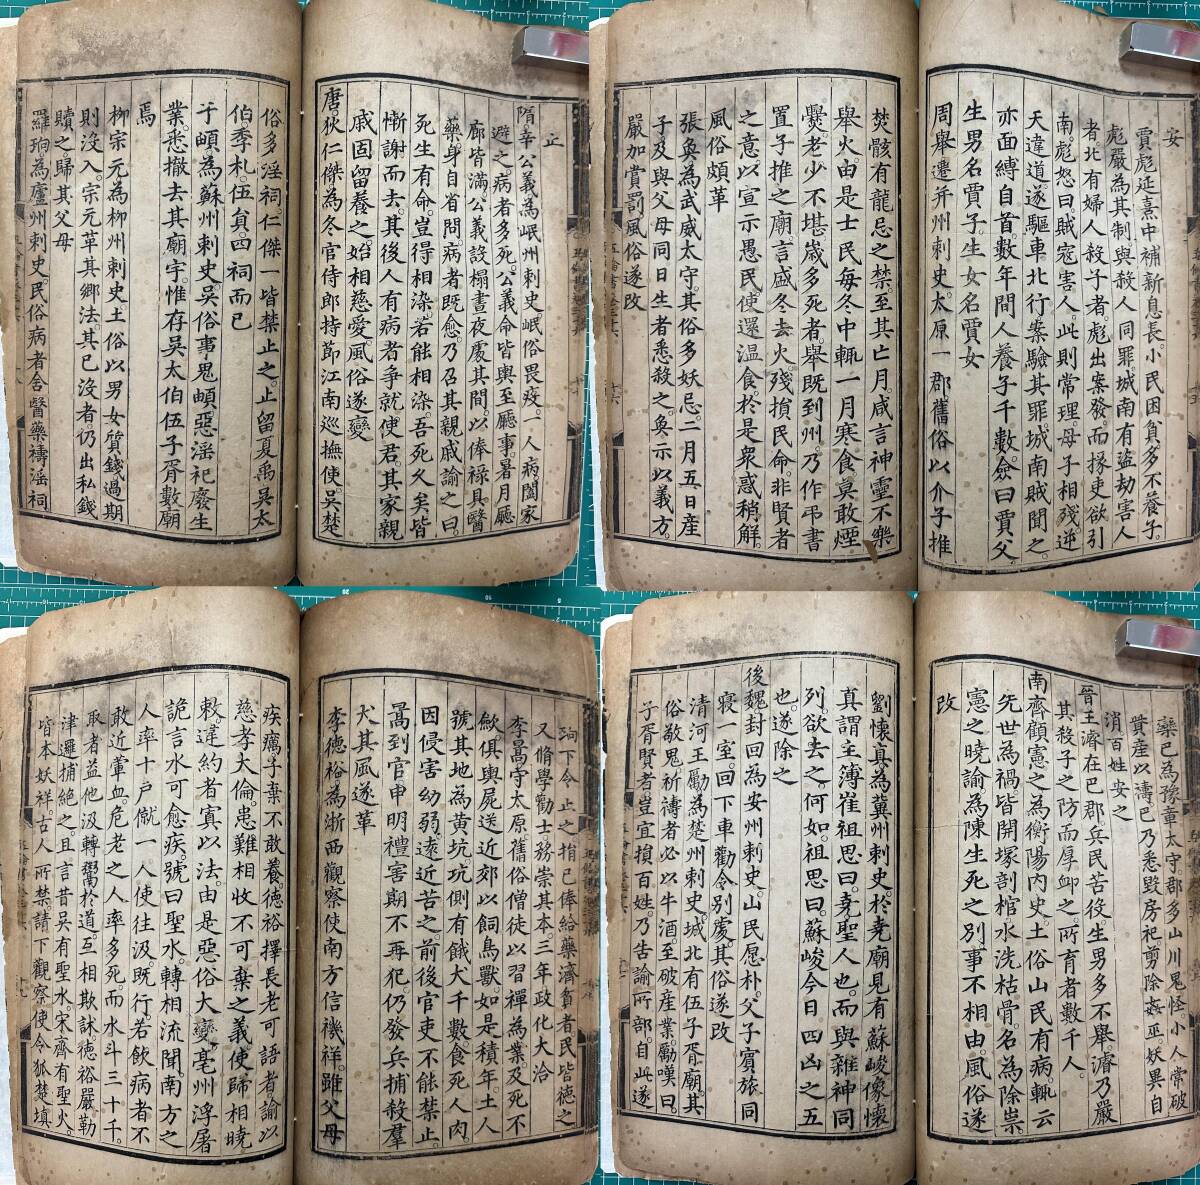 安
賈彪延熹中補新息長。小民困貧。多不養子。
彪嚴為其制。與殺人同罪。城南有盜劫害人
者。北有婦人殺子者。彪出案發。而掾吏欲引
南。彪怒曰。賊寇害人。此則常理。母子相殘。逆
天違道。遂驅車北行。案驗其罪。城南賊聞之。
亦面縛自首。數年間。人養子千數。僉曰賈父
生男名賈子。生女名賈女
周舉遷并州刺史。太原一郡。舊俗以介子推
焚骸有龍忌之禁。至其亡月。咸言神靈不樂
舉火。由是士民每冬中輒一月寒食。莫敢煙
爨。老少不堪。歲多死者。舉既到州。乃作弔書
置子推之廟。言盛冬去火。殘損民命。非賢者
之意。以宣示愚民。使還溫食。於是衆惑稍解。
風俗頗革
張奐為武威太守。其俗多妖忌。二月五日產
子及與父母同日生者悉殺之。奐示以義方。
嚴加賞罰。風俗遂改
欒巴為豫章太守。郡多山川鬼怪。小人常破
貲產以禱。巴乃悉毀房祀。剪除姦巫。妖異自
消。百姓安之
晉王濬在巴郡。兵民苦役。生男多不舉。濬乃嚴
其殺子之防而厚卹之。所育者數千人。
南齊顧憲之為衡陽內史。土俗山民有病。輒云
先世為禍。皆開塚剖棺。水洗枯骨。名為除祟
憲之曉諭。為陳生死之別。事不相由。風俗遂
改
劉懷真為冀州刺史。於堯廟見有蘇峻像。懷
真謂主簿崔祖思曰。堯聖人也。而與雜神同
列。欲去之。何如。祖思曰。蘇峻今日四凶之五
也。遂除之
後魏封回為安州刺史。山民愿朴。父子賓旅同
寢一室。回下車。勸令別處。其俗遂改
清河王勵為楚州刺史。城北有伍子胥廟。其
俗敬鬼。祈禱者必以牛酒。至破產業。勵嘆曰。
子胥賢者。豈宜損百姓。乃告諭所部。自此遂
止
隋辛公義為岷州刺史。岷俗畏疫。一人病。闔家
避之。病者多死。公義命皆輿至廳事。暑月廳
廊皆滿。公義設榻。晝夜處其間。以俸祿具醫
藥。身自省問。病者既愈。乃召其親戚諭之曰。
死生有命。豈得相染。若能相染。吾死久矣。皆
慚謝而去。其後人有病者。爭就使君。其家親
戚固留養之。始相慈愛。風俗遂變
唐狄仁傑為冬官侍郎。持節江南巡撫使。吳楚
俗多淫祠。仁傑一皆禁止之。止留夏禹。吳太
伯。季札。伍員。四祠而已
于頔為蘇州刺史。吳俗事鬼。頔惡淫祀廢生
業。悉撤去其廟宇。惟存吳太伯伍子胥數廟
焉
柳宗元為柳州刺史。土俗以男女質錢。過期
則沒入。宗元革其鄉法。其已沒者。仍出私錢
贖之。歸其父母
羅珦為廬州刺史。民俗病者舍醫藥。禱淫祠
珦下令止之。捐己俸給藥濟貧者。民皆德之
又脩學勸士。務崇其本。三年政化大洽
李暠守太原。舊俗僧徒以習禪為業。及死不
歛。俱輿屍送近郊以飼鳥獸。如是積年。土人
號其地為黃坑。坑側有餓犬千數。食死人肉。
因侵害幼弱。遠近苦之。前後官吏不能禁止。
暠到官。申明禮害。期不再犯。仍發兵捕殺羣
犬。其風遂革
李德裕為浙西觀察使。南方信禨祥。雖父母
疾癘。子棄不敢養。德裕擇長老可語者。諭以
慈孝大倫。患難相收不可棄之義。使歸相曉
敕。違約者寘以法。由是惡俗大變。亳州浮屠
詭言水可愈疾。號曰聖水。轉相流聞。南方之
人率十戶僦一人使往汲。既行。若飲。病者不
敢近葷血。危老之人率多死。而水斗三十千。
取者益他汲。轉鬻於道。互相欺訹。德裕嚴勒
津邏捕絕之。且言昔吳有聖水。宋齊有聖火。
皆本妖祥。古人所禁。請下觀察使令狐楚填